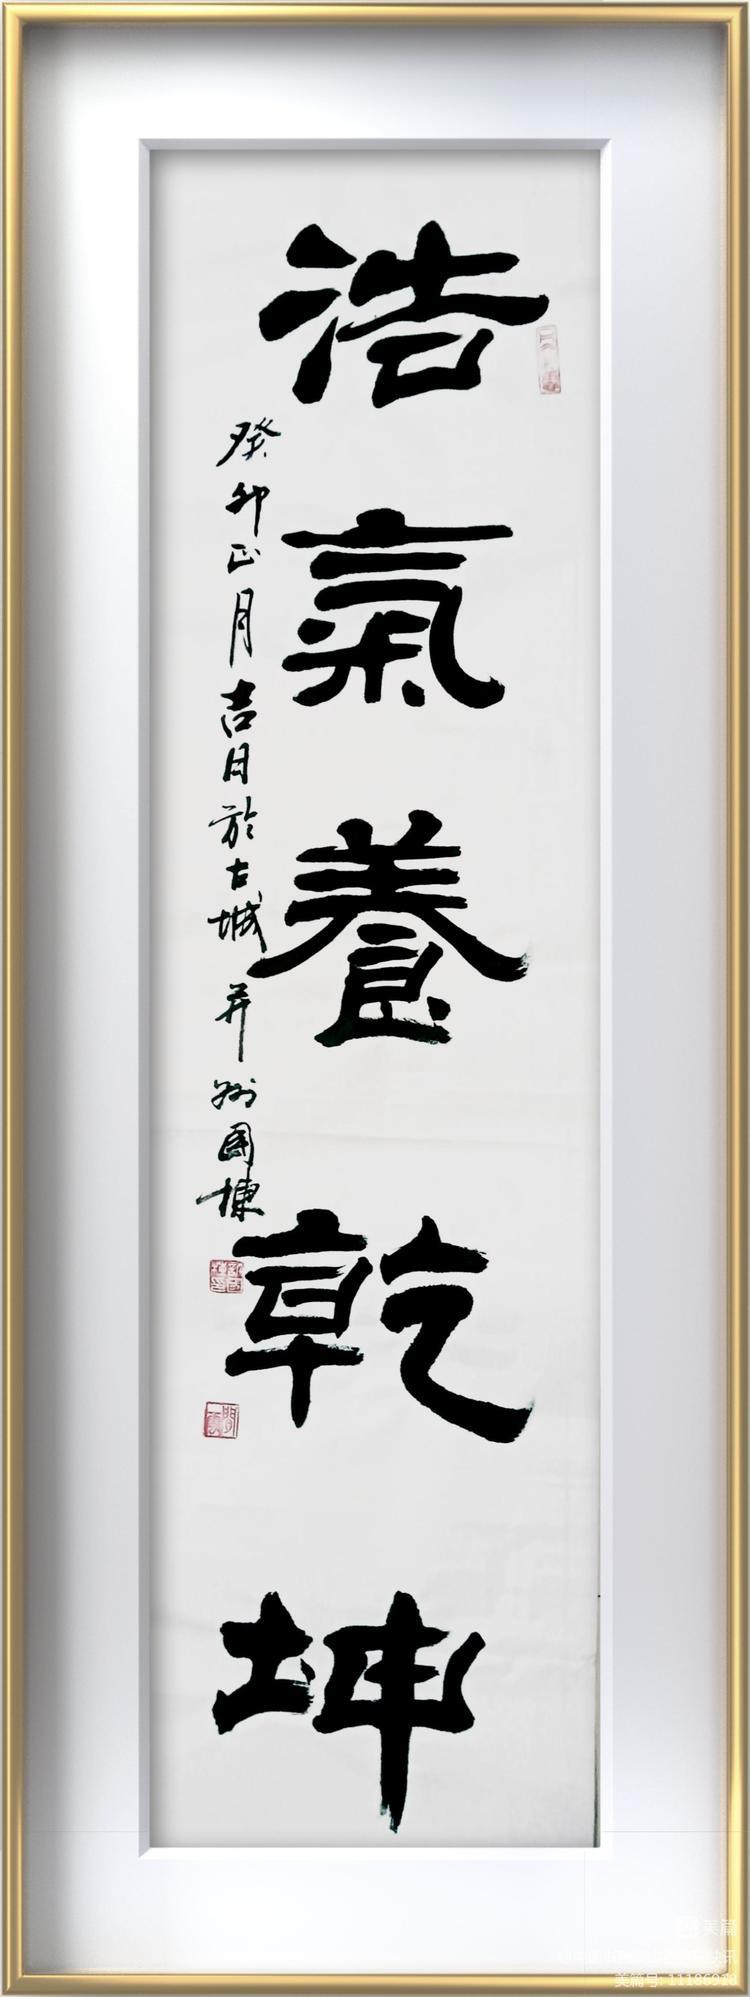 浩氣養乾坤
癸卯正月吉日於古城并州國棟
美篇
美篇号:11186918